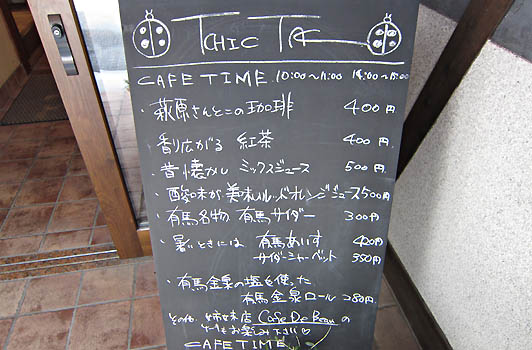 TCHIC TAC
CAFE TIME 10:00～11:00 14:00～17:00
・萩原さんとこの珈琲 400円
・香り広がる 紅茶 400円
・昔懐かし ミックスジュース 500円
・酸味が美味しい ブレンジジュース 500円
・有馬名物 有馬サイダー 300円
・暑いときには 有馬あいす 420円
サイダーシャーベット 350円
・有馬金泉の塩を使った
有馬金泉ロール 280円
その他、姉妹店 Cafe De Beau の
ケーキもお楽しみ下さい♡
CAFE TIME